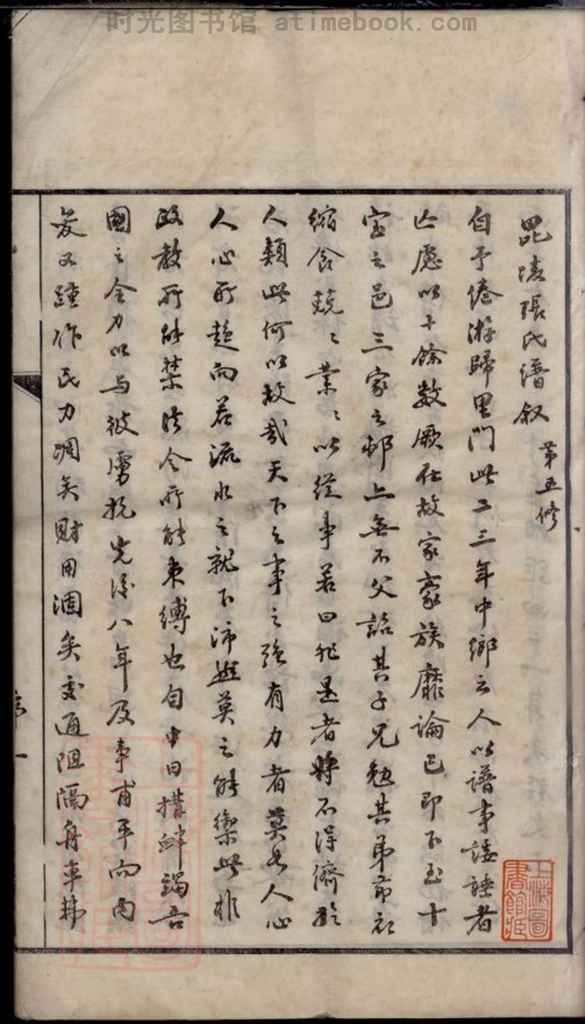 时光图书馆 atimebook.com
毘陵張氏譜叙 第五修
自予倦游歸里門此二三年中鄉之人以譜事諈諉者
亡慮以十餘數厥在故家豪族靡論已即下至十
室之邑三家之邨亦無不父詔其子兄勉其弟節衣
縮食兢〻業〻以從事若曰非是者將不得儕於
人類此何以故哉天下之事之強有力者莫如人心
人心所趨向若流水之就下沛然莫之能禦此非
政教所能禁法令所能束縛也自中日搆衅竭吾
國之全力以与彼虜抗先後八年及事甫平而内
爰又踵作民力凋矣財用涸矣交通阻隔舟車
序 一
上海圖書館藏